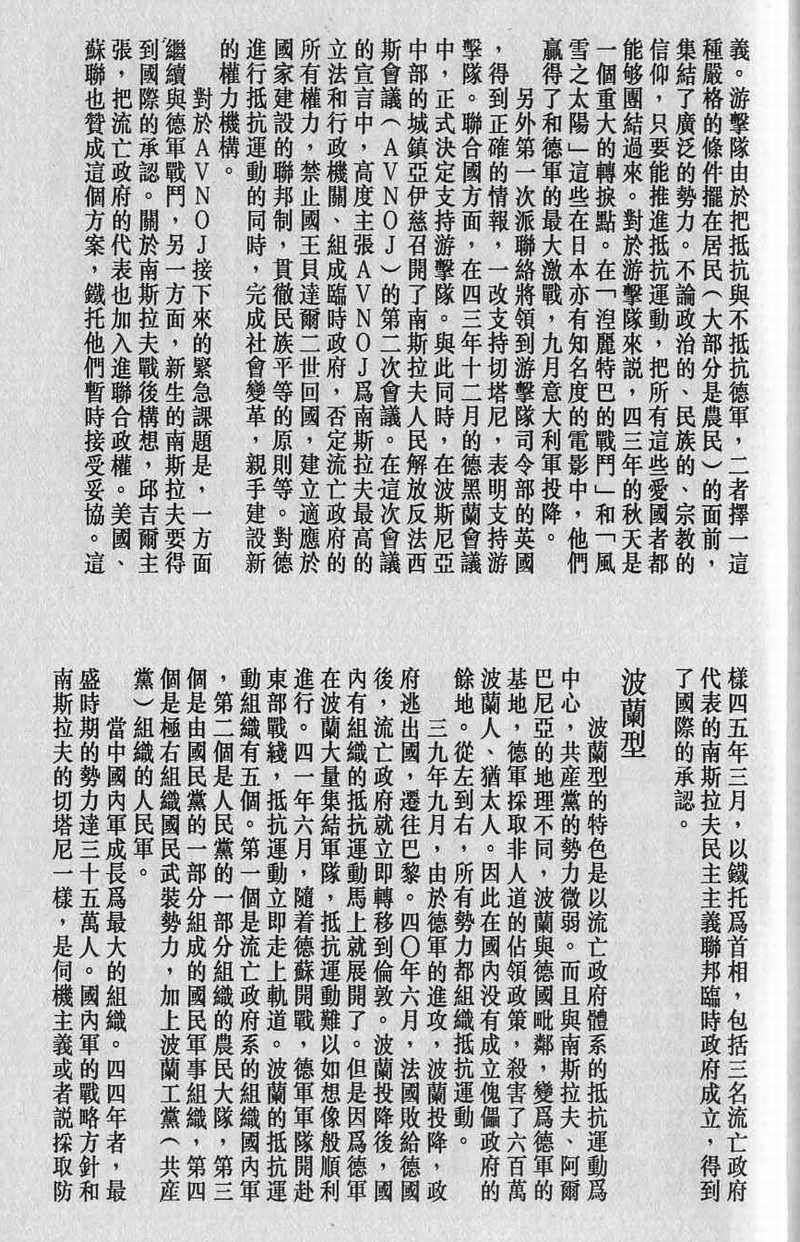 義。游擊隊由於把抵抗與不抵抗德軍，二者擇一這
種嚴格的條件擺在居民（大部分是農民）的面前，
集結了廣泛的勢力。不論政治的、民族的、宗教的
信仰，只要能推進抵抗運動，把所有這些愛國者都
能够團結過來。對於游擊隊來說，四三年的秋天是
一個重大的轉捩點。在「涅麗特巴的戰鬥」和「風
雪之太陽」這些在日本亦有知名度的電影中，他們
贏得了和德軍的最大激戰，九月意大利軍投降。
另外第一次派聯絡將領到游擊隊司令部的英國
，得到正確的情報，一改支持切塔尼，表明支持游
擊隊。聯合國方面，在四三年十二月的德黑蘭會議
中，正式決定支持游擊隊。與此同時，在波斯尼亞
中部的城鎮亞伊慈召開了南斯拉夫人民解放反法西
斯會議（AVNOJ）的第二次會議。在這次會議
的宣言中，高度主張AVNOJ爲南斯拉夫最高的
立法和行政機關、組成臨時政府，否定流亡政府的
所有權力，禁止國王貝達爾二世回國，建立適應於
國家建設的聯邦制，貫徹民族平等的原則等。對德
進行抵抗運動的同時，完成社會變革，親手建設新
的權力機構。
對於AVNOJ接下來的緊急課題是，一方面
繼續與德軍戰鬥，另一方面，新生的南斯拉夫要得
到國際的承認。關於南斯拉夫戰後構想，邱吉爾主
張，把流亡政府的代表也加入進聯合政權。美國、
蘇聯也贊成這個方案，鐵托他們暫時接受妥協。這
樣四五年三月，以鐵托爲首相，包括三名流亡政府
代表的南斯拉夫民主主義聯邦臨時政府成立，得到
了國際的承認。
波蘭型
波蘭型的特色是以流亡政府體系的抵抗運動爲
中心，共產黨的勢力微弱。而且與南斯拉夫、阿爾
巴尼亞的地理不同，波蘭與德國毗鄰，變爲德軍的
基地，德軍採取非人道的佔領政策，殺害了六百萬
波蘭人、猶太人。因此在國內没有成立傀儡政府的
餘地。從左到右，所有勢力都組織抵抗運動。
三九年九月，由於德軍的進攻，波蘭投降，政
府逃出國，遷往巴黎。四〇年六月，法國敗給德國
後，流亡政府就立即轉移到倫敦。波蘭投降後，國
內有組織的抵抗運動馬上就展開了。但是因爲德軍
在波蘭大量集結軍隊，抵抗運動難以如想像般順利
進行。四一年六月，隨着德蘇開戰，德軍軍隊開赴
東部戰綫，抵抗運動立即走上軌道。波蘭的抵抗運
動組織有五個。第一個是流亡政府系的組織國內軍
，第二個是人民黨的一部分組織的農民大隊，第三
個是由國民黨的一部分組成的國民軍事組織，第四
個是極右組織國民武裝勢力，加上波蘭工黨（共產
黨）組織的人民軍。
當中國內軍成長爲最大的組織。四四年者，最
盛時期的勢力達三十五萬人。國內軍的戰略方針和
南斯拉夫的切塔尼一樣，是伺機主義或者說採取防